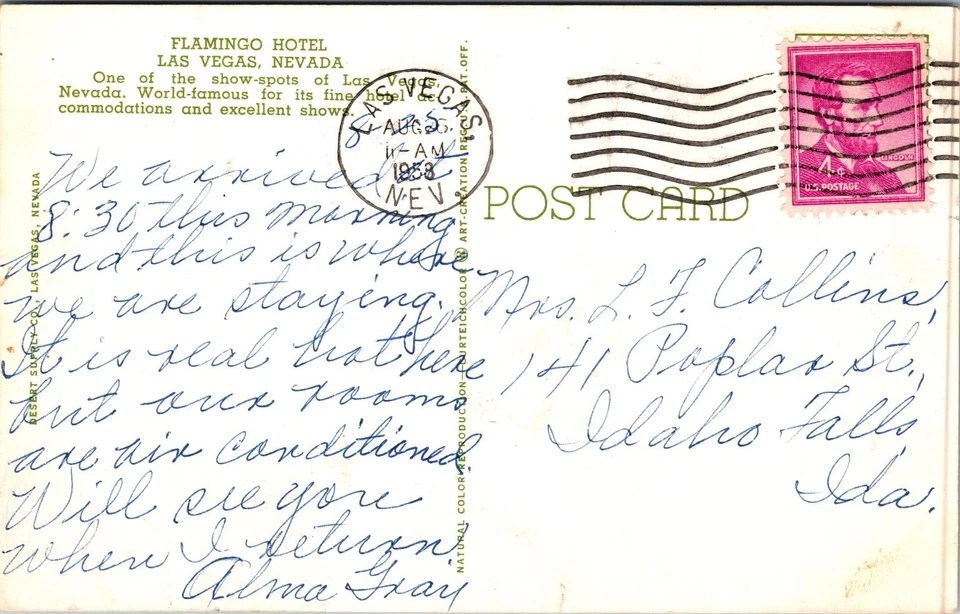 FLAMINGO HOTEL
LAS VEGAS, NEVADA
One of the show-spots of Las Vegas,
Nevada. World-famous for its fine hotel ac-
commodations and excellent shows.
8-25
We arrived at
8:30 this morning
and this is where
we are staying.
It is real hot here
but our rooms
are air conditioned
Will see you
when I return
Alma Gray
DESERT SUPPLY CO., LAS VEGAS, NEVADA
NATURAL COLOR REPRODUCTION CURTEICHCOLOR ® ART-CREATION REG. U.S. PAT. OFF.
LAS VEGAS,
AUG 26
11-AM
1958
NEV.
POST CARD
LINCOLN
4¢
U.S. POSTAGE
Mrs. L. F. Collins,
141 Poplar St.,
Idaho Falls
Ida.